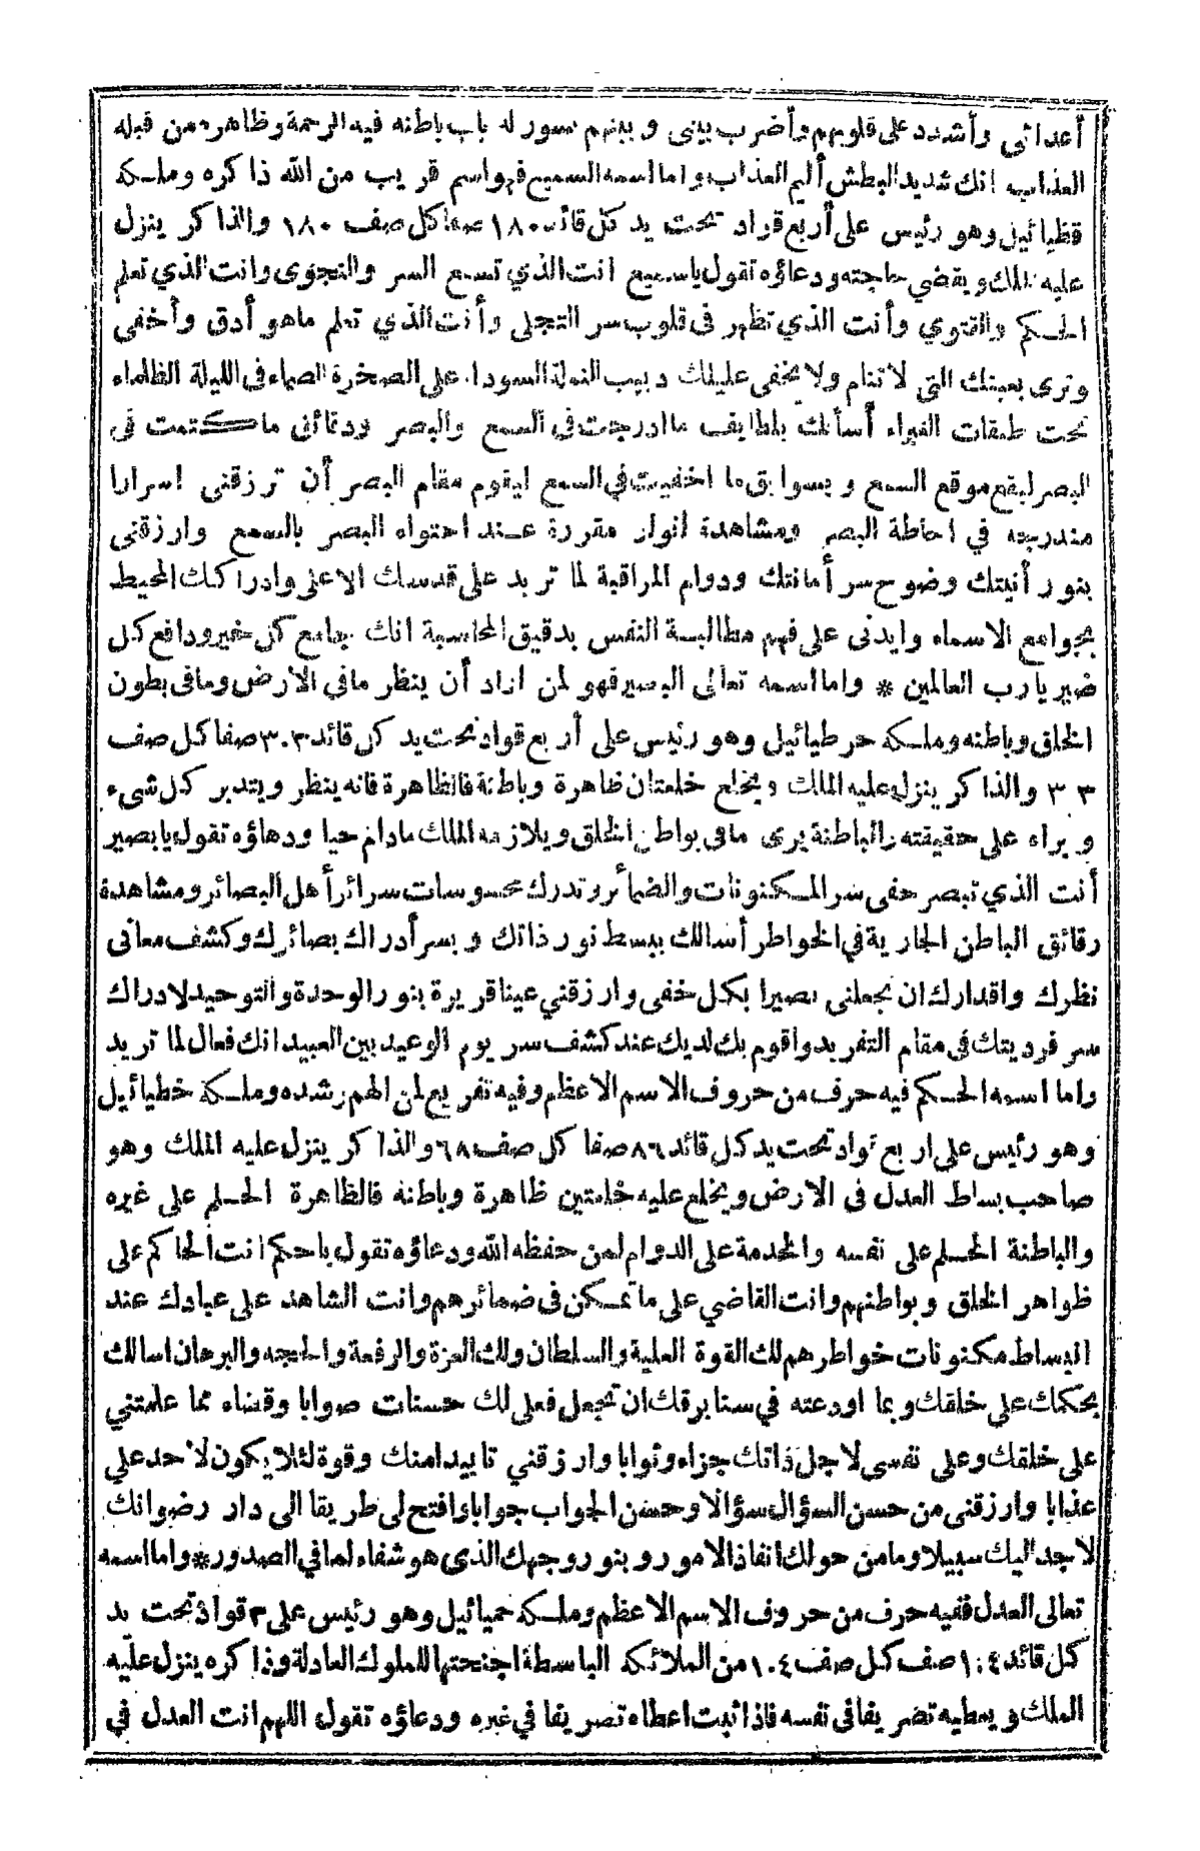 أعدائى وأشدد على قلوبهم وأضرب بينى وبينهم بسور له باب باطنه فيه الرحمة وظاهره من قبله
العذاب انك شديد البطش أليم العذاب واما اسمه السميع فهو اسم قريب من الله ذاكره وملكه
قظيائيل وهو رئيس على أربع قواد تحت يد كل قائد ١٨٠ صفا كل صف ١٨٠ والذاكر ينزل
عليه الملك ويقضي حاجته ودعاؤه تقول ياسميع انت الذي تسمع السر والنجوى وانت الذي تعلم
الحكم والفتوي وأنت الذي تظهر فى قلوب سر التجلى وأنت الذي تعلم ماهو أدق وأخفى
وترى بعينك التى لا تنام ولا يخفى عليك دبيب النملة السوداء على الصخرة الصماء فى الليلة الظلماء
تحت طبقات الغبراء أسألك بلطايف ما ادرجت فى السمع والبصر ودقائق ما كتمت فى
البصر ليقع موقع السمع وبسوابق ما اخفيت في السمع ليقوم مقام البصر أن ترزقنى اسرارا
مندرجه في احاطة البصر ومشاهدة انوار مقررة عند احتواه البصر بالسمع وارزقنى
بنور أنيتك وضوح سر أمانتك ودوام المراقبة لما تريد على قدسك الاعلى وادراكك المحيط
بجوامع الاسماء وايدنى على فهم مطالبة النفس بدقيق المحاسبة انك جامع كل خير ودافع كل
ضير يارب العالمين * واما اسمه تعالى البصير فهو لمن اراد أن ينظر مافي الارض ومافى بطون
الخلق وباطنه وملكه حرطيائيل وهو رئيس على أربع قواد تحت يد كل قائد ٣٠٣ صفا كل صف
٣٠٣ والذاكر ينزل عليه الملك ويخلع خلعتان ظاهرة وباطنة فالظاهرة فانه ينظر ويتدبر كل شيء
ويراه على حقيقته والباطنة يرى مافى بواطن الخلق ويلازمه الملك مادام حيا ودهاؤه تقول يابصير
أنت الذي تبصر خفى سر المكنونات والضمائر وتدرك محسوسات سرائر أهل البصائر ومشاهدة
رقائق الباطن الجارية في الخواطر أسالك ببسط نور ذاتك وبسر أدراك بصائرك وكشف معانى
نظرك واقدارك ان تجعلنى بصيرا بكل خفى وارزقني عينا قريرة بنور الوحدة والتوحيد لادراك
سر فرديتك فى مقام التفريد واقوم بك لديك عند كشف سر يوم الوعيد بين العبيد انك فعال لما تريد
واما اسمه الحكم فيه حرف من حروف الاسم الاعظم وفيه تفريع لمن الهم رشده وملكه خطيائيل
وهو رئيس على اربع قواد تحت يد كل قائد ٨٦ صفا كل صف ٦٨ والذاكر ينزل عليه الملك وهو
صاحب بساط العدل فى الارض ويخلع عليه خلعتين ظاهرة وباطنه فالظاهرة الحلم على غيره
والباطنة الحلم على نفسه والخدمة على الدوام لمن حفظه الله ودعاؤه تقول ياحكم انت الحاكم على
ظواهر الخلق وبواطنهم وانت القاضي على ماتمكن فى ضمائرهم وانت الشاهد على عبادك عند
انبساط مكنونات خواطرهم لك القوة العلية والسلطان ولك العزة والرفعة والحجه والبرهان اسالك
بحكمك على خلقك وبما اودعته في سنا برقك ان تجعل فعلى لك حسنات صوابا وقضاء مما علمتني
على خلقك وعلى نفسى لاجل ذاتك جزاء وثوابا وارزقني تاييدا منك وقوة لئلا يكون لاحد علي
عذابا وارزقنى من حسن السؤال سؤالا وحسن الجواب جوابا وافتح لى طريقا الى دار رضوانك
لاجد اليك سبيلا ومامن حولك انفاذ الامور وبنور وجهك الذى هو شفاء لما في الصدور * واما اسمه
تعالى العدل ففيه حرف من حروف الاسم الاعظم وملكه حميائيل وهو رئيس على ٣ قواد تحت يد
كل قائد ١٠٤ صف كل صف ١٠٤ من الملائكه الباسطة اجنحتها للملوك العادلة وذاكره ينزل عليه
الملك ويعطيه تصريفا فى نفسه فاذا ثبت اعطاه تصريفا في غيره ودعاؤه تقول اللهم انت العدل في